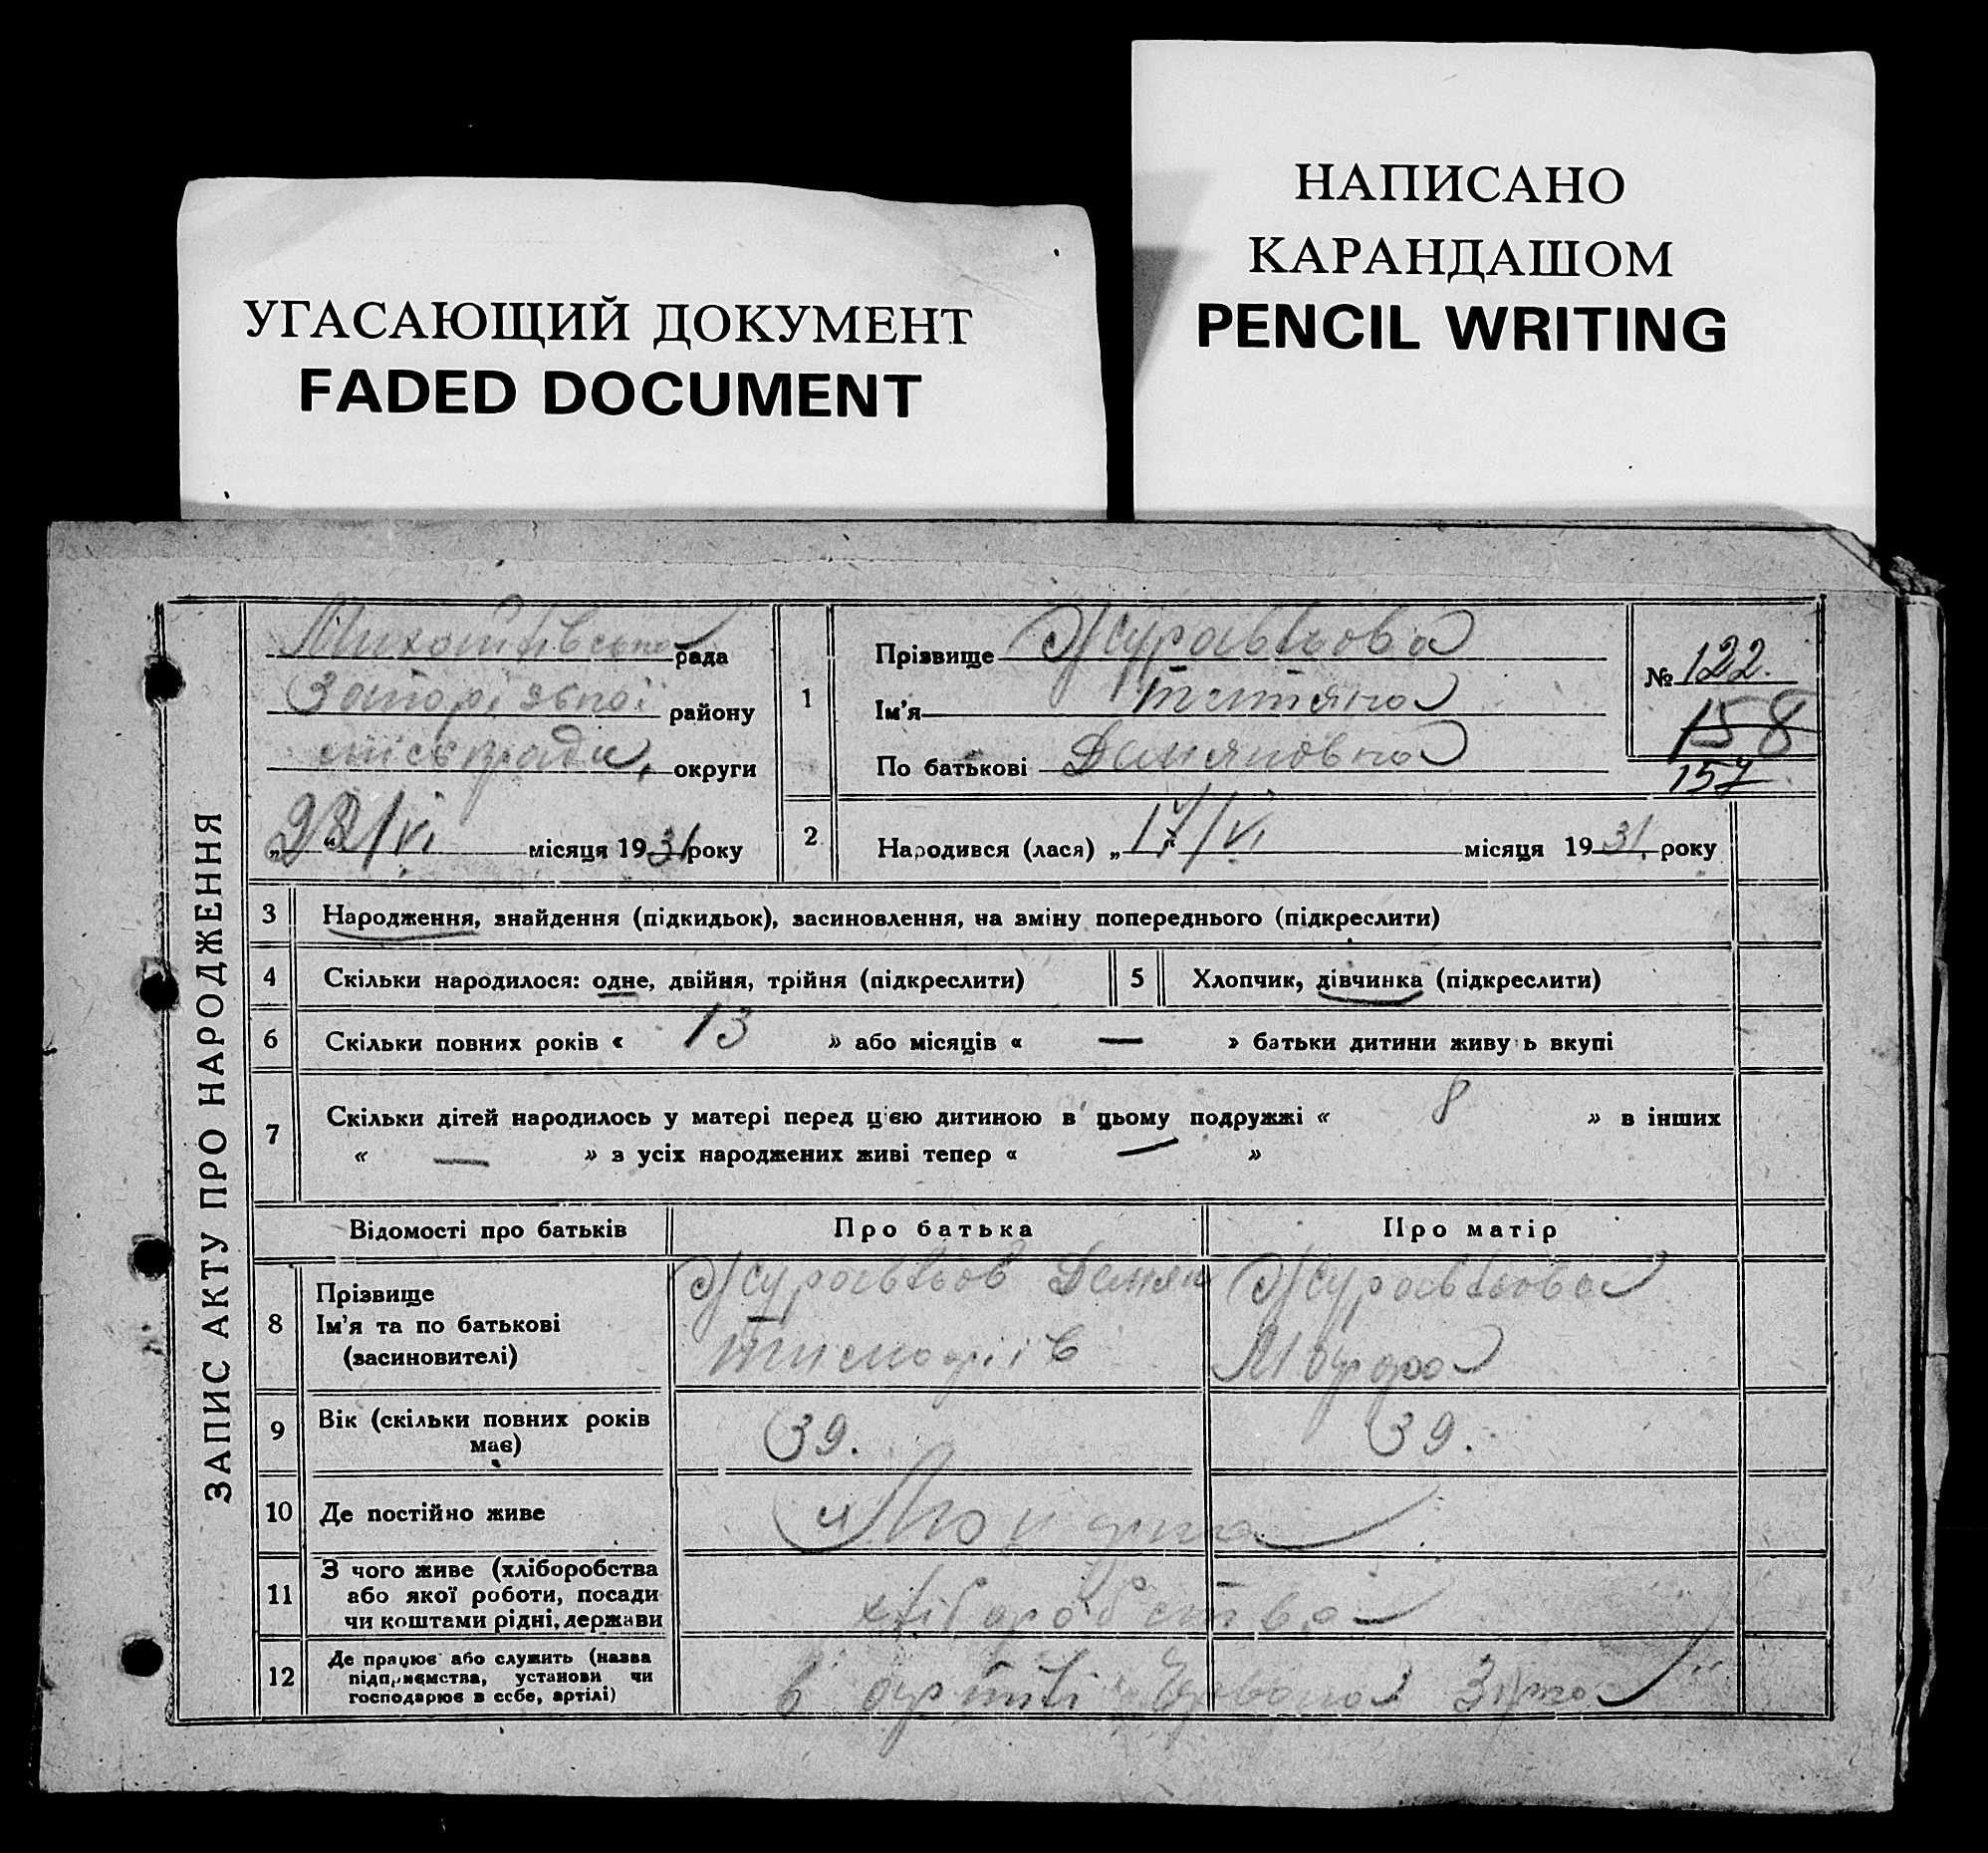 НАПИСАНО
КАРАНДАШОМ
PENCIL WRITING
УГАСАЮЩИЙ ДОКУМЕНТ
FADED DOCUMENT
ЗАПИС АКТУ ПРО НАРОДЖЕННЯ
Михайлівська рада
Запорізької району
міськради, округи
„22“/VI місяця 1931 року
1
Прізвище Журавльова
Ім'я Титяна
По батькові Демяновна
№ 122.
158
157
2 Народився (лася) „17/VI місяця 1931 року
3 Народження, знайдення (підкидьок), засиновлення, на зміну попереднього (підкреслити)
4 Скільки народилося: одне, двійня, трійня (підкреслити) 5 Хлопчик, дівчинка (підкреслити)
6 Скільки повних років « 13 » або місяців « — » батьки дитини живуть вкупі
7 Скільки дітей народилось у матері перед цією дитиною в цьому подружжі « 8 » в інших
« — » з усіх народжених живі тепер « — »
Відомості про батьків Про батька Про матір
8 Прізвище
Ім'я та по батькові
(засиновителі)
Журавльов Демян
Тимофіів
Журавльова
Мотря
9 Вік (скільки повних років
має)
39. 39.
10 Де постійно живе
11 З чого живе (хліборобства
або якої роботи, посади
чи коштами рідні, держави
хліборобства
12 Де працює або служить (назва
підприємства, установи чи
господарює в себе, артілі)
в артілі „Червона Зірка"